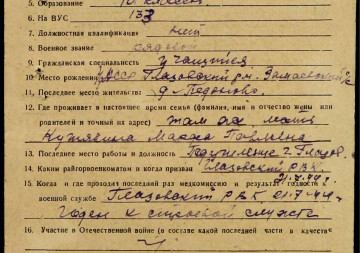 5. Образование 10 классов
6. На ВУС 133
7. Должностная квалификация нет
8. Военное звание рядовой
9. Гражданская специальность учащийся
10. Место рождения УАССР Глазовский р-н.
11. Последнее место жительства д.
12. Где проживает в настоящее время семья (фамилия, имя и отчество жены или
родителей и точный их адрес) там же мать
Мария Павловна
13. Последнее место работы и должность г. Глазов
14. Каким райгорвоенкоматом и когда призван Глазовский РВК
15. Когда и где проходил последний раз медкомиссию и результат годности к
военной службе Глазовский РВК 21.7.44г.
Годен к строевой службе
16. Участие в Отечественной войне (в составе какой последней части и в качестве